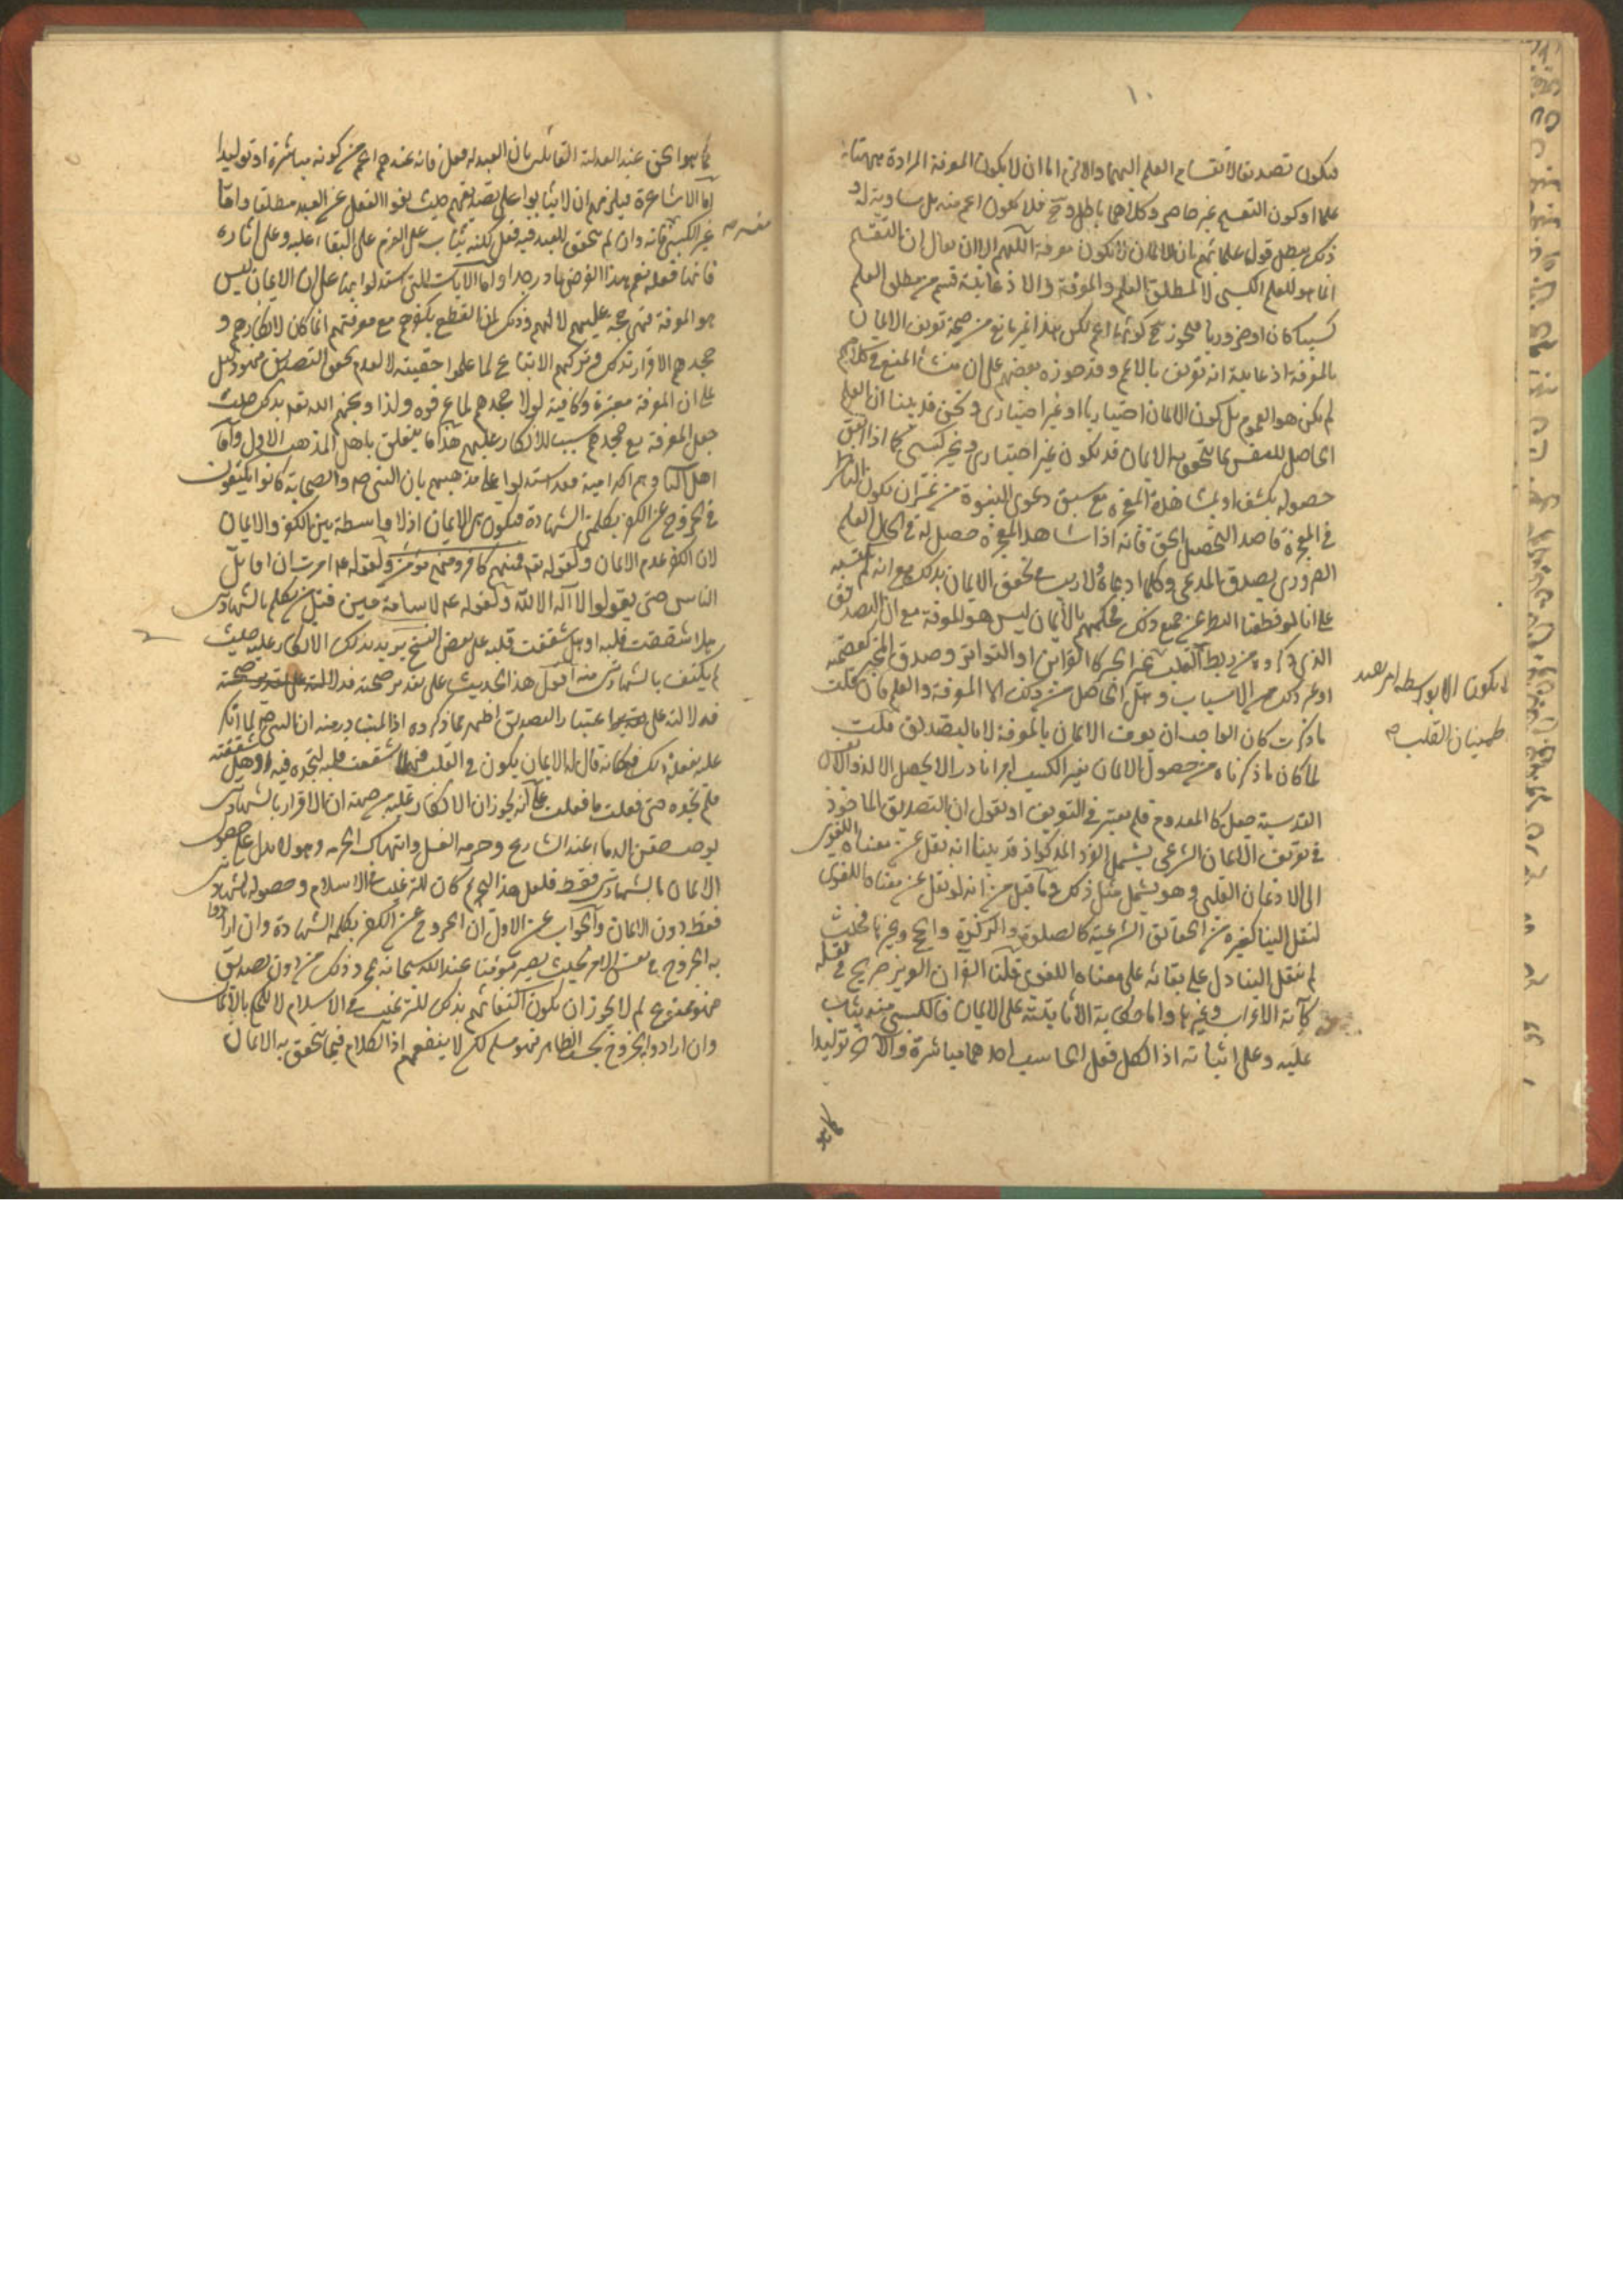 ١٠
فيكون تصديقا لانقسام العلم اليهما والا لزم اما ان لا يكون المعرفة المرادة ههنا
علما او كون التقسيم غير حاصر وكلاهما باطل وح فلا يكون اعم منه بل مساوية له و
ذلك يبطل قول علمائهم بان الايمان لا يكون معرفة اللهم الا ان يقال ان التقسيم
انما هو للعلم الكسبي لا لمطلق العلم والمعرفة والاذعانية قسم من مطلق العلم
كسبيا كان او ضروريا فيجوز ح كونها اعم لكن هذا غير مانع من صحة تعريف الايمان
بالمعرفة اذ غايته انه تعريف بالاعم وقد جوزه بعضهم على ان منشأ المنع في كلامهم
لم يكن هو العموم بل كون الايمان اختياريا او غير اختياري ونحن قد بينا ان العلم
الحاصل للنفس بما يتحقق به الايمان قد يكون غير اختياري وغير كسبي كما اذا اتفق
حصوله بكشف او بمشاهدة المعجزة مع سبق دعوى النبوة من غير ان يكون الناظر
في المعجزة قاصد التحصيل الحق فانه اذا شاهد المعجزة حصل له في الحال العلم
الضروري بصدق المدعي وكلما ادعاه ولا ريب في تحقق الايمان بذلك مع انه لم
على انا لو قطعنا النظر عن جميع ذلك فحكمهم بالايمان ليس هو المعرفة مع ان التصديق
الذي ذكروه من ربط القلب عن الخبر كالقرائن او التواتر وصدق المخبر لعصمته
او غير ذلك من الاسباب وهل الحاصل من ذلك الا المعرفة والعلم فان قلت
لا يكون الا بواسطة امر يفيد
طمينان القلب صح
ما ذكرت كان الواجب ان يعرف الايمان بالمعرفة لا بالتصديق قلت
لما كان ما ذكرناه من حصول الايمان بغير الكسب امرا نادرا لا يحصل الا لذوي
القدسية جعل كالمعدوم فلم يعتبر في التعريف او يقول ان التصديق الماخوذ
في تعريف الايمان الشرعي يشمل الفرد المذكور اذ قد بينا انه نقل عن معناه اللغوي
الى الاذعان القلبي وهو يشمل مثل ذلك وما قيل من انه لو نقل عن معناه اللغوي
لنقل الينا كغيره من الحقائق الشرعية كالصلوة والزكوة والحج وغيرها فحيث
لم ينقل الينا دل على بقائه على معناه اللغوي قلنا القرآن العزيز صريح في نقله
كآية الاعراب وغيرها واما حكاية الاثابة على الايمان فالكسبي منه يثاب
عليه وعلى اثباته اذ الكل فعل الحاسب احدهما مباشرة والاخر توليدا
كما هو
كما هو الحق عند العدلية القائلين بان العبد له فعل فانه عندهم اعم من كونه مباشرة او توليدا
اما الاشاعرة فيلزمهم ان لا يثابوا على تصديقهم حيث نفوا الفعل عن العبد مطلقا واما
غير الكسبي فانه وان لم يتحقق للعبد فيه فعل لكنه يثاب على العزم على البقاء عليه وعلى اثاره
فانها فعله نعم هذا الفرض نادر جدا واما الايات التي استدلوا بها على ان الايمان ليس
هو المعرفة فهي حجة عليهم لا لهم وذلك لان القطع بكفرهم مع معرفتهم انما كان لانكارهم و
جحدهم الاقرار بذلك وتركهم الاتباع لما علموا حقيته لا لعدم تحقق التصديق فهو دليل
على ان المعرفة معتبرة وكافية لولا جحدهم لما عرفوه ولذا وبخهم الله تعه بذلك حيث
جعل المعرفة مع جحدهم سببا للانكار عليهم هذا ما يتعلق باهل المذهب الاول واما
اهل الثاني وهم الكرامية فقد استدلوا على مذهبهم بان النبي ص والصحابة كانوا يكتفون
في الخروج عن الكفر بكلمتي الشهادة فيكون هي الايمان اذ لا واسطة بين الكفر والايمان
لان الكفر عدم الايمان ولقوله تعه فمنهم كافر ومنهم مؤمن ولقوله عم امرت ان اقاتل
الناس حتى يقولوا لا اله الا الله ولقوله عم لاسامة حين قتل من تكلم بالشهادتين
هلا شققت قلبه او هل شققت قلبه على بعض النسخ يريد بذلك الانكار عليه حيث
لم يكتف بالشهادتين منه اقول هذا الحديث على تقدير صحته فدلالته على تقدير صحته
فدلالته على اعتبار التصديق اظهر مما ذكروه اذ المتبادر منه ان النبي ص لما انكر
عليه بفعله ذلك فكانه قال له الايمان يكون في القلب فهلا شققت قلبه لتجده فيه او هل شققته
فلم تجده حتى فعلت ما فعلت على انه يجوز ان الانكار عليه من جهة ان الاقرار بالشهادتين
يوجب حقن الدماء عند الشارع وحرمة القتل وانتهاك الحرمة وهو لا يدل على حصول
الايمان بالشهادتين فقط فلعل هذا الحكم كان للترغيب في الاسلام وحصوله بالشهادتين
فقط دون الايمان والجواب عن الاول ان الخروج عن الكفر بكلمة الشهادة وان ارادوا
به الخروج في نفس الامر بحيث يصير مؤمنا عند الله سبحانه بمجرد ذلك من دون تصديق
فهو ممنوع لم لا يجوز ان يكون اكتفائهم بذلك للترغيب في الاسلام لا للحكم بالايمان
وان ارادوا الخروج بحسب الظاهر فهو مسلم لكن لا ينفعهم اذ الكلام فيما يتحقق به الايمان